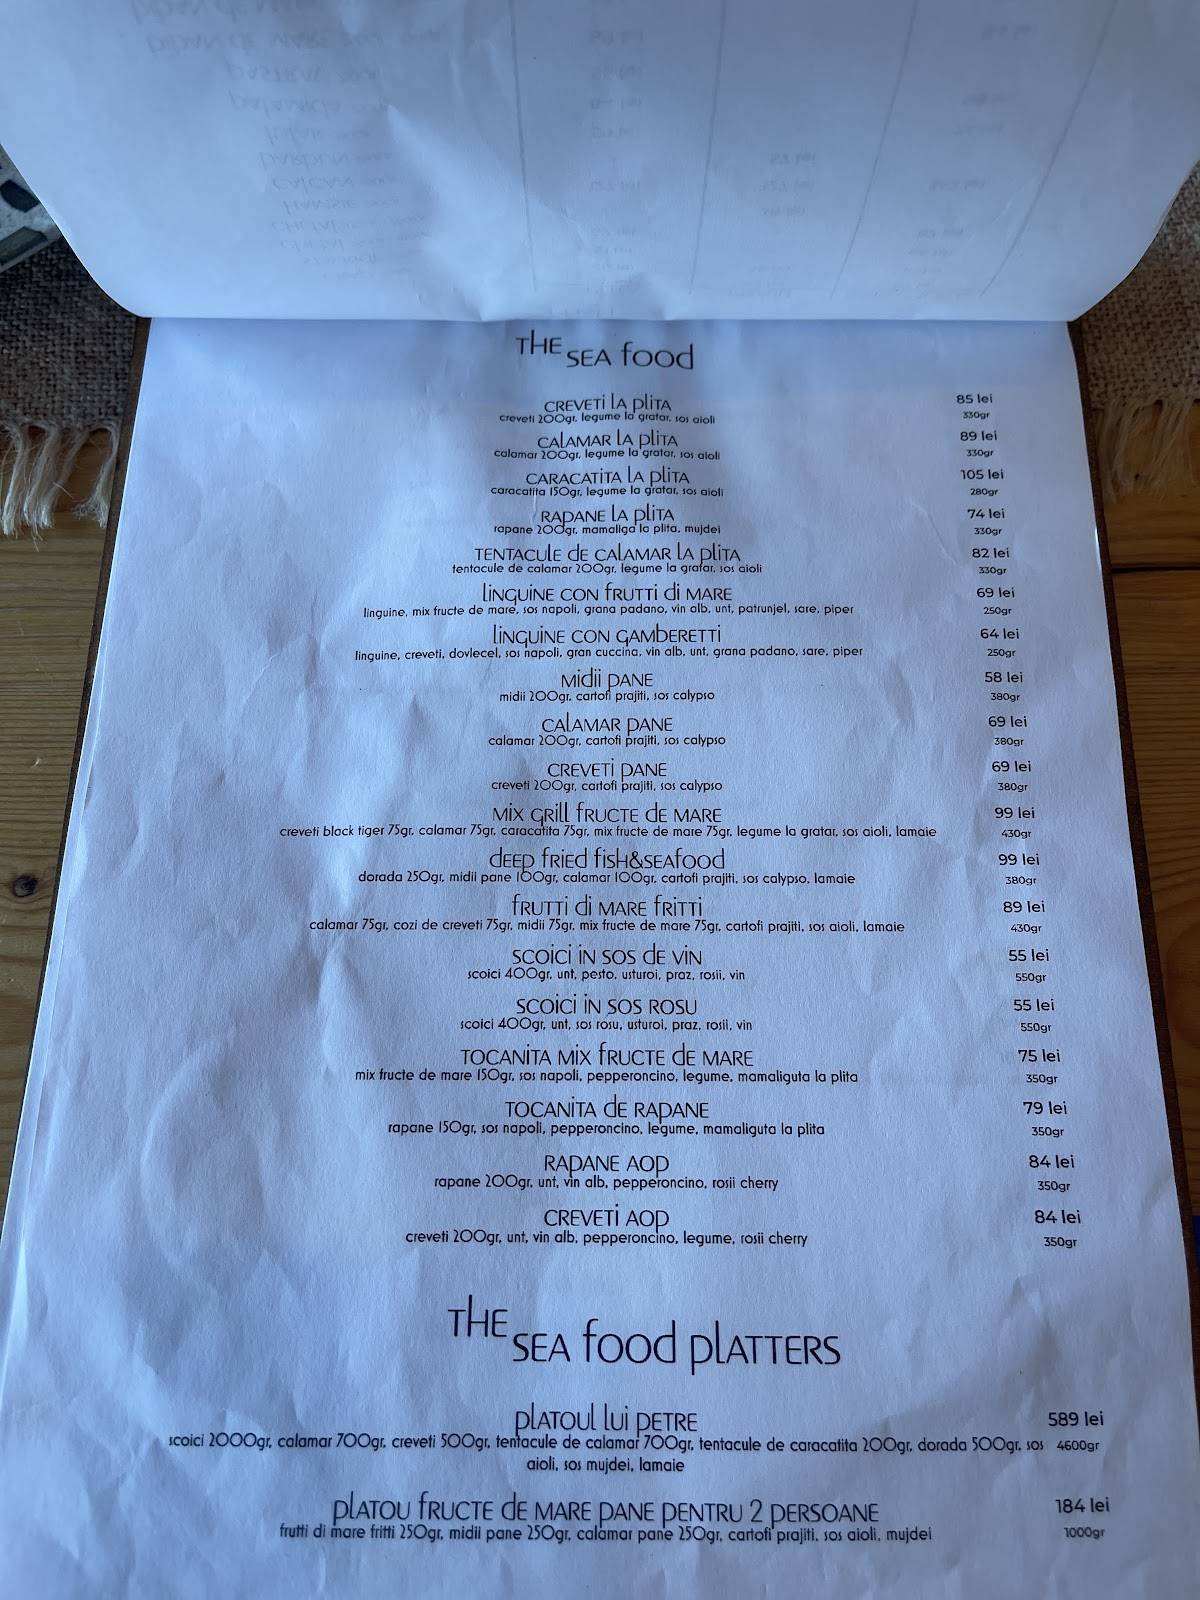 THE SEA food
CREVETI LA PLITA 85 lei
creveti 200gr, legume la gratar, sos aioli 330gr
CALAMAR LA PLITA 89 lei
calamar 200gr, legume la gratar, sos aioli 330gr
CARACATITA LA PLITA 105 lei
caracatita 150gr, legume la gratar, sos aioli 280gr
RAPANE LA PLITA 74 lei
rapane 200gr, mamaliga la plita, mujdei 330gr
TENTACULE de CALAMAR LA PLITA 82 lei
tentacule de calamar 200gr, legume la gratar, sos aioli 330gr
LINGUINE CON FRUTTI di MARE 69 lei
linguine, mix fructe de mare, sos napoli, grana padano, vin alb, unt, patrunjel, sare, piper 250gr
LINGUINE CON GAMBERETTI 64 lei
linguine, creveti, dovlecel, sos napoli, gran cuccina, vin alb, unt, grana padano, sare, piper 250gr
Midii PANE 58 lei
midii 200gr, cartofi prajiti, sos calypso 380gr
CALAMAR PANE 69 lei
calamar 200gr, cartofi prajiti, sos calypso 380gr
CREVETI PANE 69 lei
creveti 200gr, cartofi prajiti, sos calypso 380gr
MIX GRILL FRUCTE de MARE 99 lei
creveti black tiger 75gr, calamar 75gr, caracatita 75gr, mix fructe de mare 75gr, legume la gratar, sos aioli, lamaie 430gr
deep fried fish&seafood 99 lei
dorada 250gr, midii pane 100gr, calamar 100gr, cartofi prajiti, sos calypso, lamaie 380gr
FRUTTI di MARE FRITTI 89 lei
calamar 75gr, cozi de creveti 75gr, midii 75gr, mix fructe de mare 75gr, cartofi prajiti, sos aioli, lamaie 430gr
SCOICI IN SOS DE VIN 55 lei
scoici 400gr, unt, pesto, usturoi, praz, rosii, vin 550gr
SCOICI IN SOS ROSU 55 lei
scoici 400gr, unt, sos rosu, usturoi, praz, rosii, vin 550gr
TOCANITA MIX FRUCTE de MARE 75 lei
mix fructe de mare 150gr, sos napoli, pepperoncino, legume, mamaliguta la plita 350gr
TOCANITA de RAPANE 79 lei
rapane 150gr, sos napoli, pepperoncino, legume, mamaliguta la plita 350gr
RAPANE AOP 84 lei
rapane 200gr, unt, vin alb, pepperoncino, rosii cherry 350gr
CREVETI AOP 84 lei
creveti 200gr, unt, vin alb, pepperoncino, legume, rosii cherry 350gr
THE SEA food PLATTERS
PLATOUL LUI PETRE 589 lei
scoici 2000gr, calamar 700gr, creveti 500gr, tentacule de calamar 700gr, tentacule de caracatita 200gr, dorada 500gr, sos 4600gr
aioli, sos mujdei, lamaie
PLATOU FRUCTE de MARE PANE PENTRU 2 PERSOANE 184 lei
frutti di mare fritti 250gr, midii pane 250gr, calamar pane 250gr, cartofi prajiti, sos aioli, mujdei 1000gr